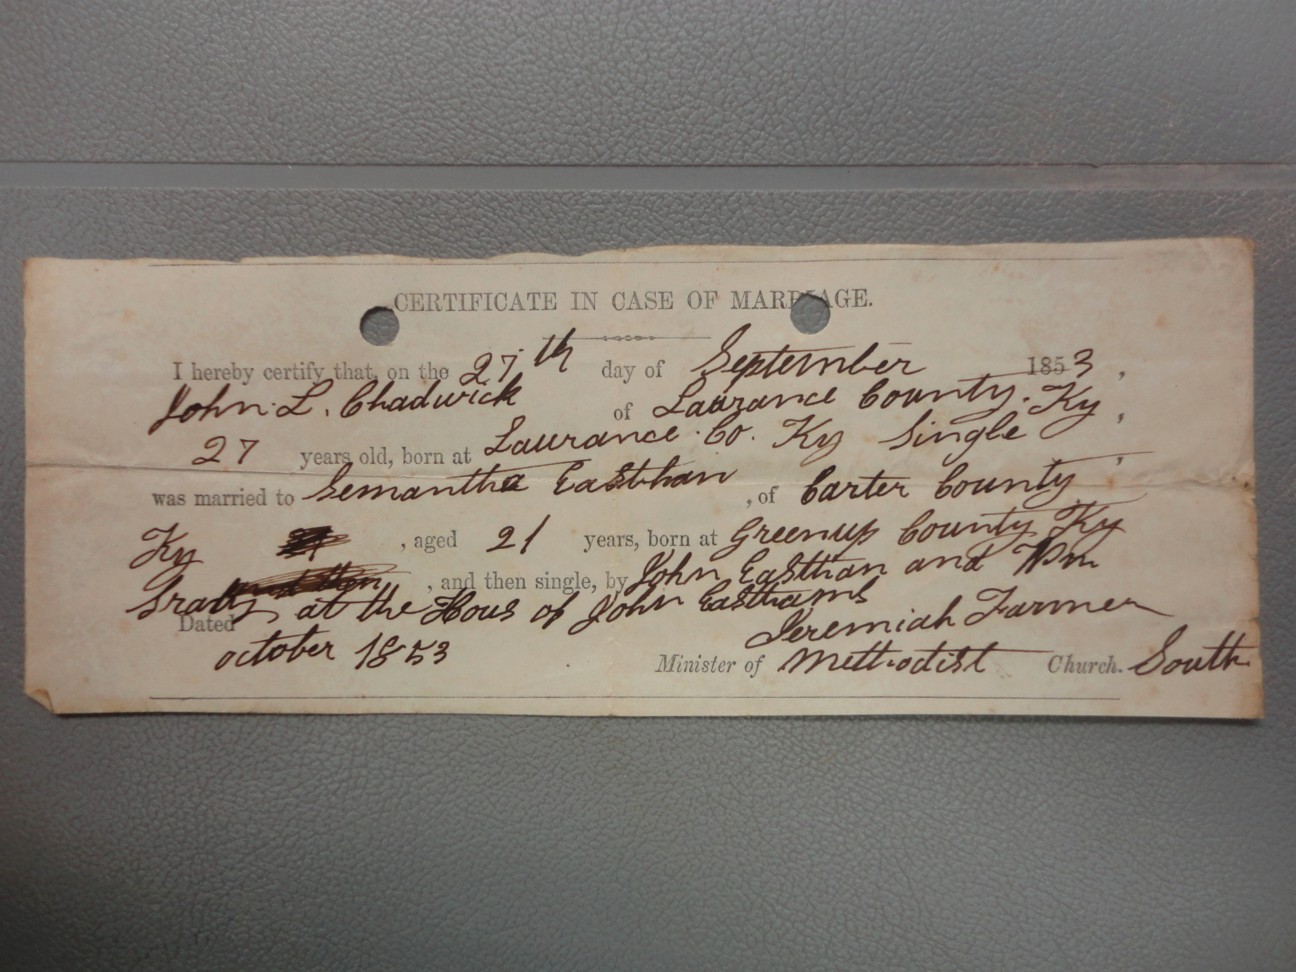 CERTIFICATE IN CASE OF MARRIAGE.
I hereby certify that, on the 27th day of September 1853,
John L. Chadwick of Laurance County. Ky,
27 years old, born at Laurance Co. Ky Single,
was married to Semantha Easthan, of Carter County
Ky, aged 21 years, born at Greenup County Ky
, and then single, by John Easthan and Wm
at the Hous of John Easthams
Dated Jeremiah Farmer
october 1853 Minister of Methodist Church. South